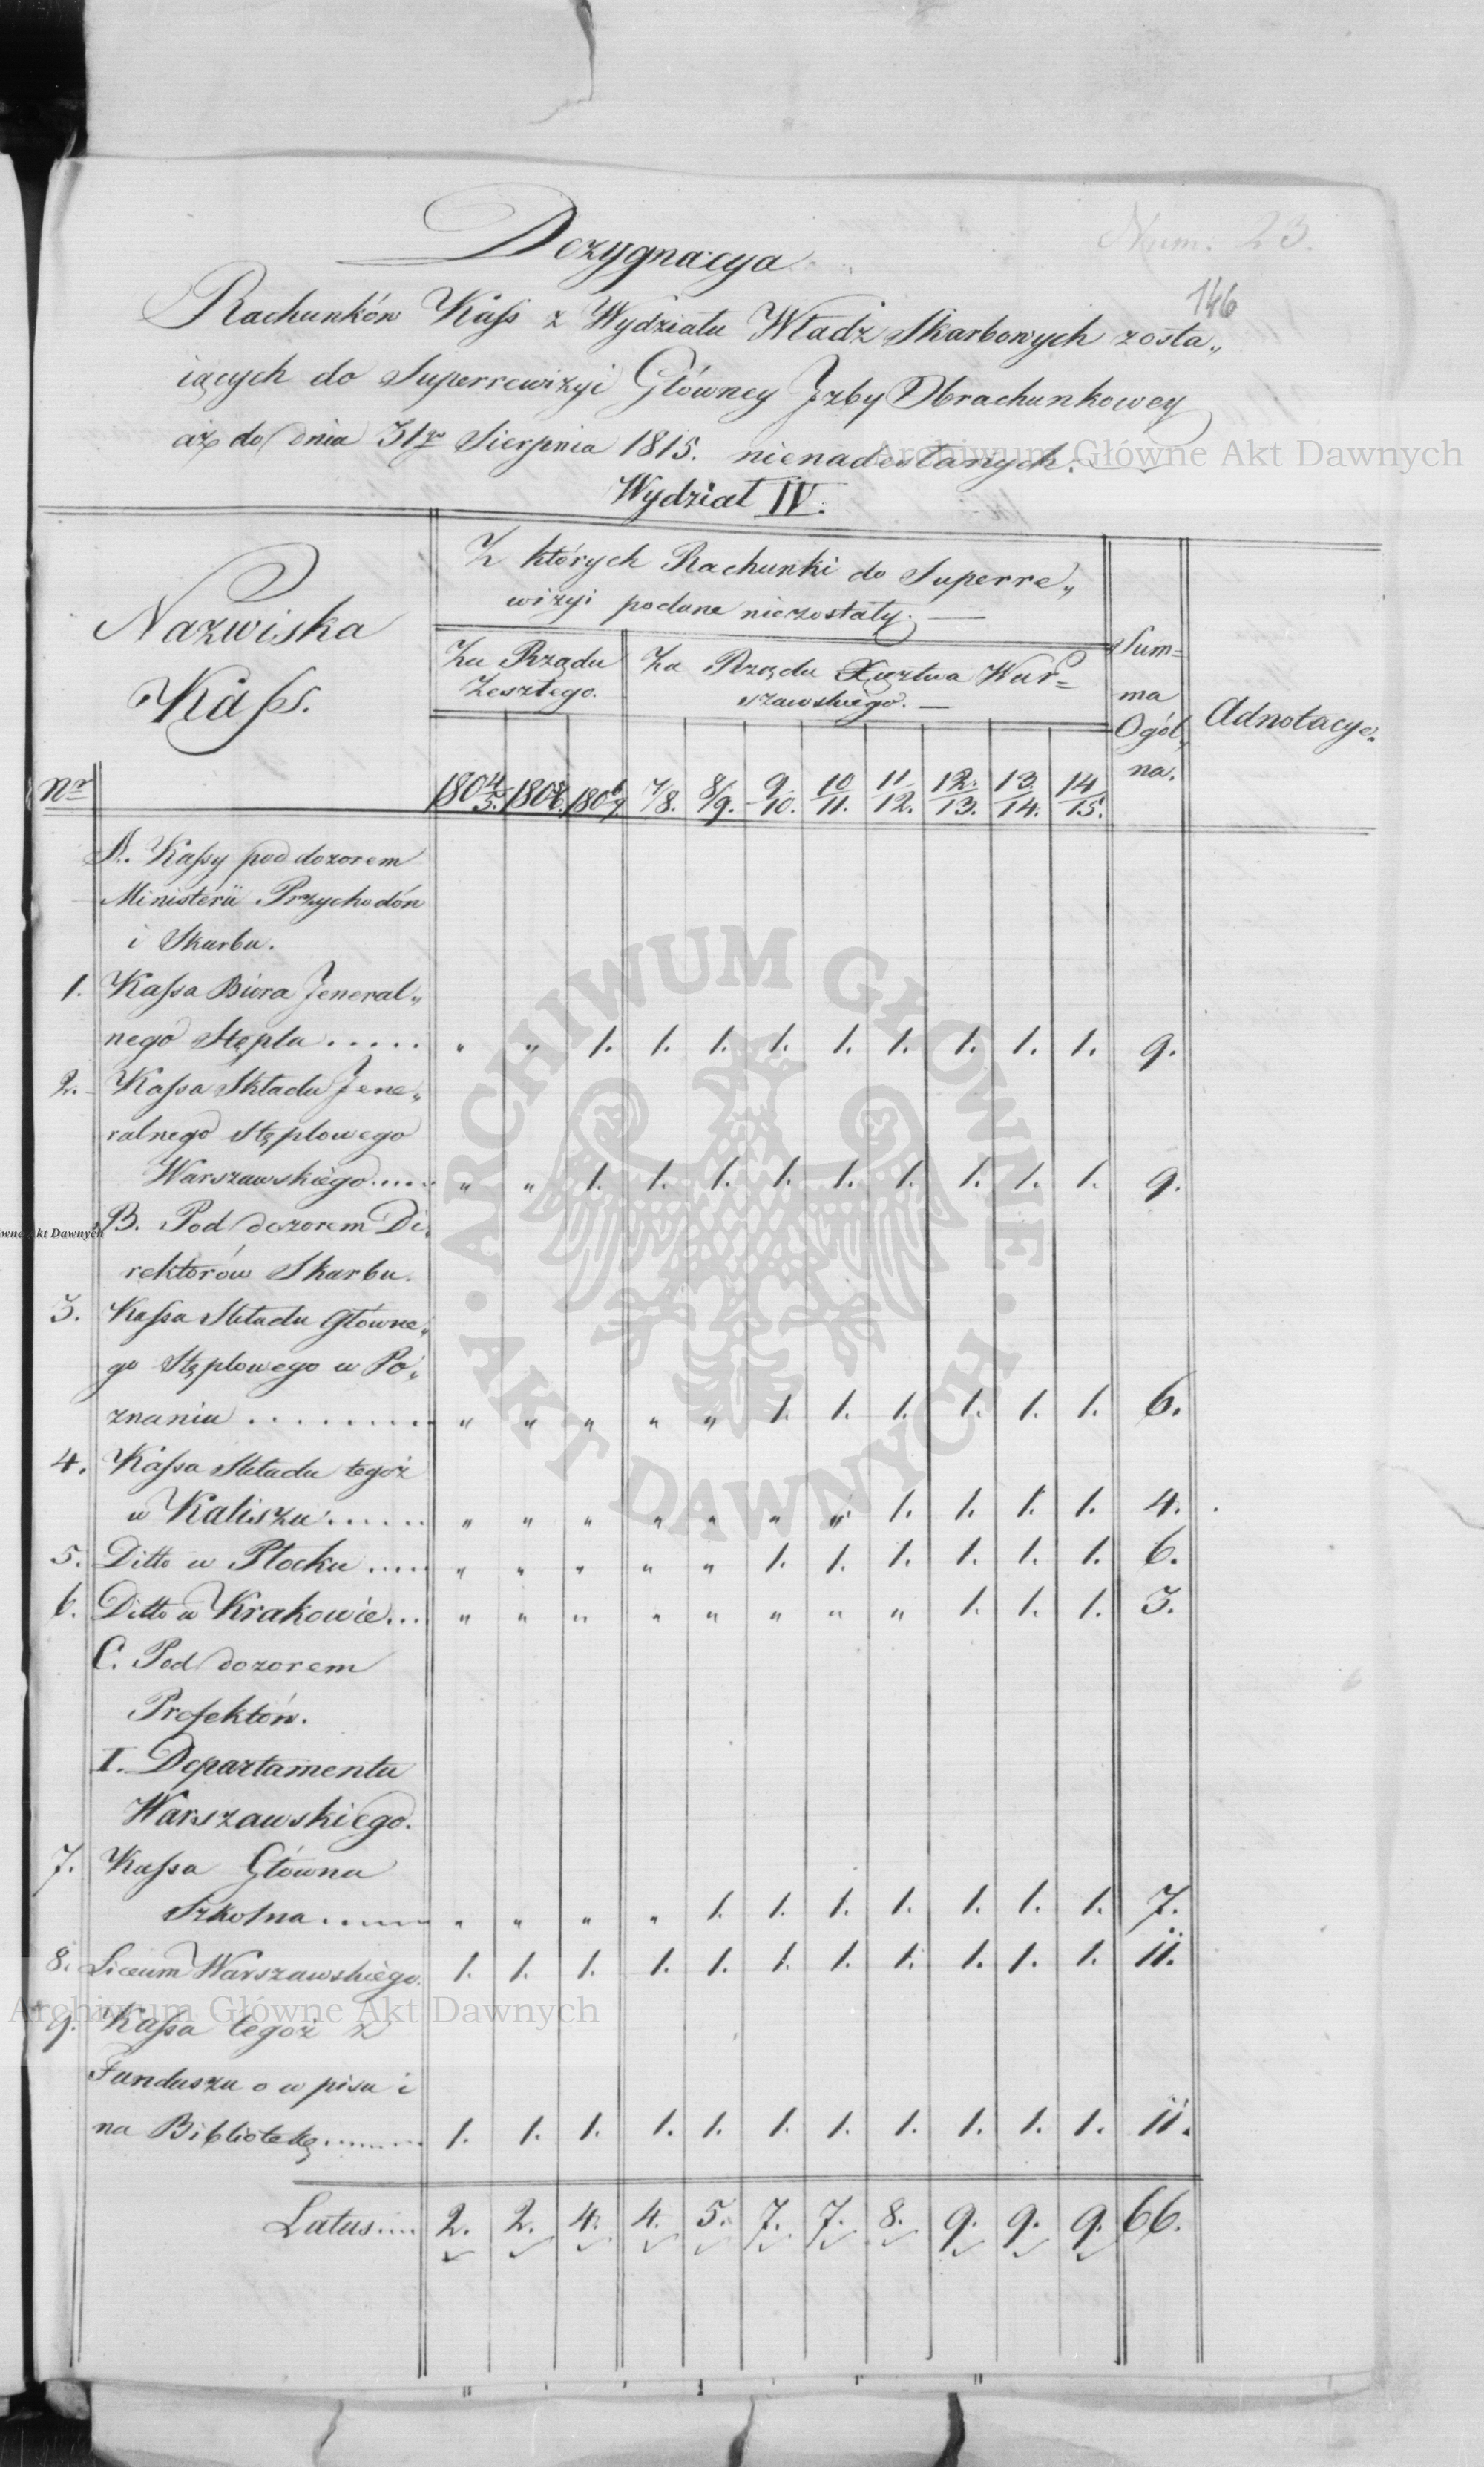 Num. 23.
146
Dezygnacya
Rachunków Kass z Wydziału Władz Skarbowych zosta„
iących do Superrewizyi Główney Jzby Obrachunkowey
aż do dnia 31go Sierpnia 1815. nienadesłanych. —
Wydział IV.
Nazwiska
Kass.
Nr
Z których Rachunki do Superre„
wizyi podane niezostały. —
Za Rządu
Zeszłego.
Za Rządu Xięztwa War=
szawskiego. —
Sum=
ma
Ogól„
na.
Adnotacye.
1804/5. 1805/6. 1806/7. 7/8. 8/9. 9/10. 10/11. 11/12. 12/13. 13/14. 14/15.
A. Kassy pod dozorem
Ministerii Przychodów
i Skarbu.
1. Kassa Biora Jeneral„
nego Stępla ..... „ „ 1. 1. 1. 1. 1. 1. 1. 1. 1. 9.
2. Kassa Składu Jene„
ralnego Stęplowego
Warszawskiego..... „ „ 1. 1. 1. 1. 1. 1. 1. 1. 1. 9.
B. Pod dozorem Di„
rektorów Skarbu.
3. Kassa Składu Główne„
go Stęplowego w Po„
znaniu ......... „ „ „ „ „ 1. 1. 1. 1. 1. 1. 6.
4. Kassa Składu tegoż
w Kaliszu ...... „ „ „ „ „ „ „ 1. 1. 1. 1. 4.
5. Ditto w Płocku ..... „ „ „ „ „ 1. 1. 1. 1. 1. 1. 6.
6. Ditto w Krakowie... „ „ „ „ „ „ „ „ 1. 1. 1. 3.
C. Pod dozorem
Prefektów.
I. Departamentu
Warszawskiego.
7. Kassa Główna
Szkolna ....... „ „ „ „ 1. 1. 1. 1. 1. 1. 1. 7.
8. Liceum Warszawskiego. 1. 1. 1. 1. 1. 1. 1. 1. 1. 1. 1. 11.
9. Kassa tegoż z
Funduszu o wpisu i
na Bibliotekę ........ 1. 1. 1. 1. 1. 1. 1. 1. 1. 1. 1. 11.
Latus.... 2. 2. 4. 4. 5. 7. 7. 8. 9. 9. 9. 66.
Archiwum Główne Akt Dawnych
ARCHIWUM GŁÓWNE · AKT DAWNYCH ·
Akt Dawnych
Archiwum Główne Akt Dawnych